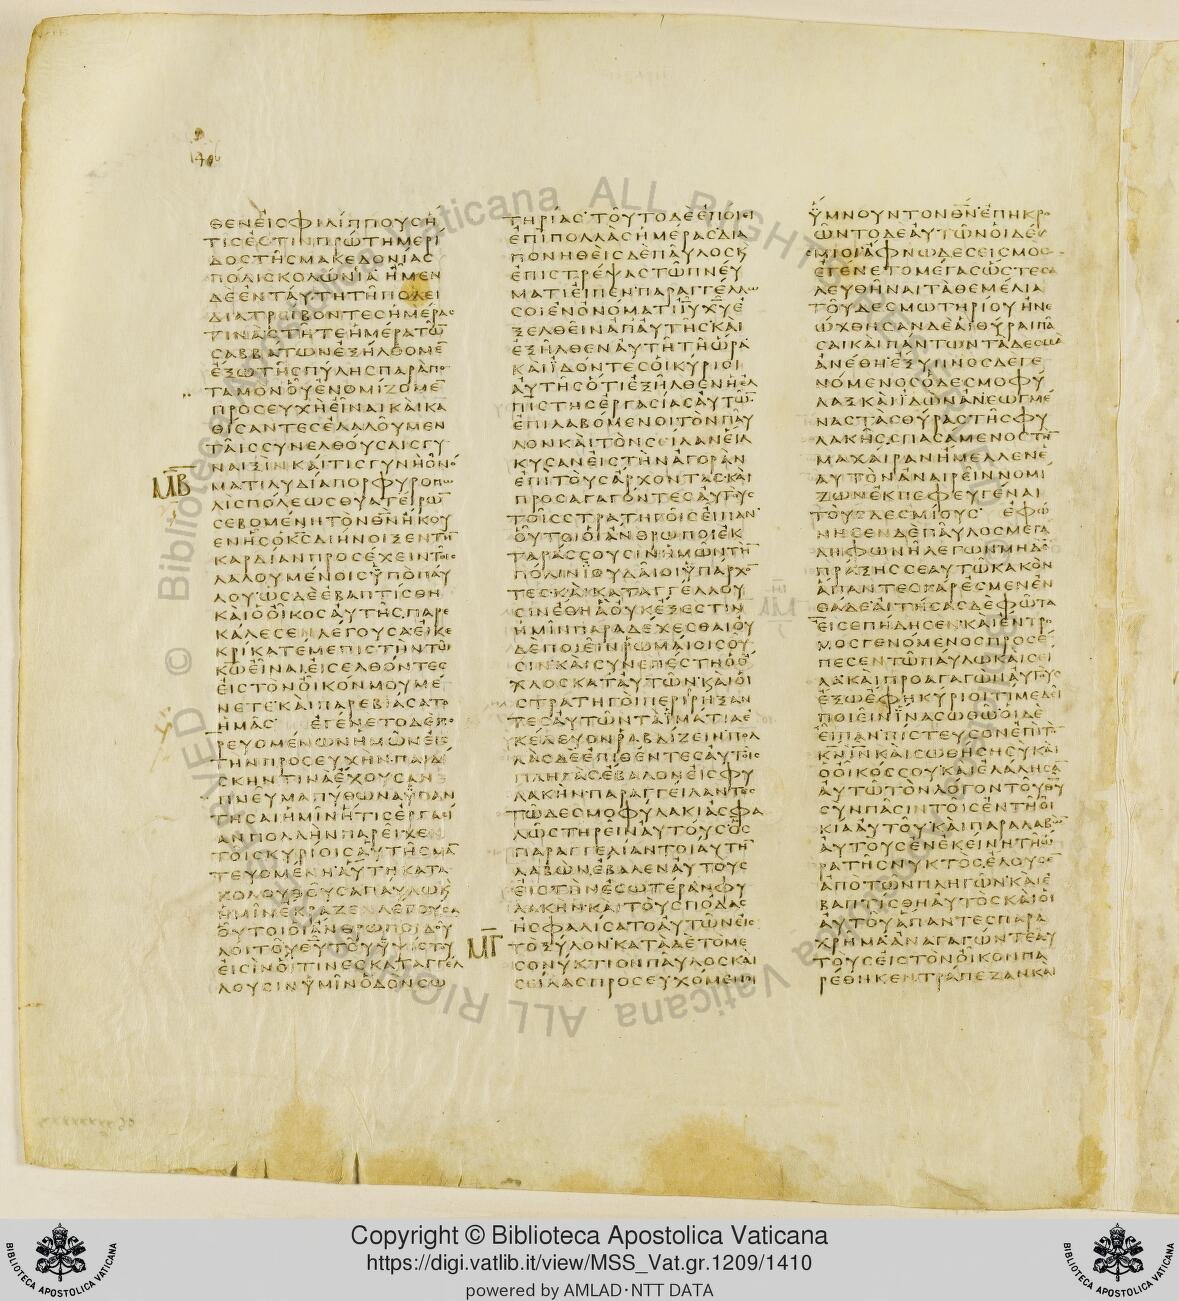 1406
ΘΕΝΕΙΣΦΙΛΙΠΠΟΥΣΗ
ΤΙΣΕΣΤΙΝΠΡΩΤΗΜΕΡΙ
ΔΟΣΤΗΣΜΑΚΕΔΟΝΙΑΣ
ΠΟΛΙΣΚΟΛΩΝΙΑΗΜΕΝ
ΔΕΕΝΤΑΥΤΗΤΗΠΟΛΕΙ
ΔΙΑΤΡΕΙΒΟΝΤΕΣΗΜΕΡΑΣ
ΤΙΝΑΣΤΗΤΕΗΜΕΡΑΤΩ̅
ΣΑΒΒΑΤΩΝΕΞΗΛΘΟΜΕ̅
ΕΞΩΤΗΣΠΥΛΗΣΠΑΡΑΠΟ
ΤΑΜΟΝΟΥΕΝΟΜΙΖΟΜΕ̅
ΠΡΟΣΕΥΧΗΕΙΝΑΙΚΑΙΚΑ
ΘΙΣΑΝΤΕΣΕΛΑΛΟΥΜΕΝ
ΤΑΙΣΣΥΝΕΛΘΟΥΣΑΙΣΓΥ
ΝΑΙΞΙΝΚΑΙΤΙΣΓΥΝΗΟΝΟ
ΜΒ̅
ΜΑΤΙΛΥΔΙΑΠΟΡΦΥΡΟΠΩ
ΛΙΣΠΟΛΕΩΣΘΥΑΤΕΙΡΩ̅
ΣΕΒΟΜΕΝΗΤΟΝΘ̅Ν̅ΗΚΟΥ
ΕΝΗΣΟΚ̅Σ̅ΔΙΗΝΟΙΞΕΝΤΗ̅
ΚΑΡΔΙΑΝΠΡΟΣΕΧΕΙΝΤΟΙΣ
ΛΑΛΟΥΜΕΝΟΙΣΥΠΟΠΑΥ
ΛΟΥΩΣΔΕΕΒΑΠΤΙΣΘΗ
ΚΑΙΟΟΙΚΟΣΑΥΤΗΣΠΑΡΕ
ΚΑΛΕΣΕΝΛΕΓΟΥΣΑΕΙΚΕ
ΚΡΙΚΑΤΕΜΕΠΙΣΤΗΝΤΩ
ΚΩ̅ΕΙΝΑΙΕΙΣΕΛΘΟΝΤΕΣ
ΕΙΣΤΟΝΟΙΚΟΝΜΟΥΜΕ
ΝΕΤΕΚΑΙΠΑΡΕΒΙΑΣΑΤΟ
ΗΜΑΣ ΕΓΕΝΕΤΟΔΕΠΟ
ΡΕΥΟΜΕΝΩΝΗΜΩΝΕΙΣ
ΤΗΝΠΡΟΣΕΥΧΗΝΠΑΙΔΙ
ΣΚΗΝΤΙΝΑΕΧΟΥΣΑΝ
ΠΝΕΥΜΑΠΥΘΩΝΑΫΠΑΝ
ΤΗΣΑΙΗΜΙΝΗΤΙΣΕΡΓΑΣΙ
ΑΝΠΟΛΛΗΝΠΑΡΕΙΧΕΝ
ΤΟΙΣΚΥΡΙΟΙΣΑΥΤΗΣΜΑ̅
ΤΕΥΟΜΕΝΗΑΥΤΗΚΑΤΑ
ΚΟΛΟΥΘΟΥΣΑΠΑΥΛΩΚ
ΗΜΙΝΕΚΡΑΖΕΝΛΕΓΟΥΣΑ
ΟΥΤΟΙΟΙΑΝΘΡΩΠΟΙΔΟΥ
ΛΟΙΤΟΥΘ̅Υ̅ΤΟΥΥΨΙΣΤΟΥ
ΕΙΣΙΝΟΙΤΙΝΕΣΚΑΤΑΓΓΕΛ
ΛΟΥΣΙΝΥΜΙΝΟΔΟΝΣΩ
ΤΗΡΙΑΣΤΟΥΤΟΔΕΕΠΟΙΕΙ
ΕΠΙΠΟΛΛΑΣΗΜΕΡΑΣΔΙΑ
ΠΟΝΗΘΕΙΣΔΕΠΑΥΛΟΣΚ
ΕΠΙΣΤΡΕΨΑΣΤΩΠΝΕΥ
ΜΑΤΙΕΙΠΕΝΠΑΡΑΓΓΕΛΛΩ
ΣΟΙΕΝΟΝΟΜΑΤΙΙ̅Υ̅Χ̅Υ̅Ε
ΞΕΛΘΕΙΝΑΠΑΥΤΗΣΚΑΙ
ΕΞΗΛΘΕΝΑΥΤΗΤΗΩΡΑ
ΚΑΙΙΔΟΝΤΕΣΟΙΚΥΡΙΟΙ
ΑΥΤΗΣΟΤΙΕΞΗΛΘΕΝΗΕΛ
ΠΙΣΤΗΣΕΡΓΑΣΙΑΣΑΥΤΩ̅
ΕΠΙΛΑΒΟΜΕΝΟΙΤΟΝΠΑΥ
ΛΟΝΚΑΙΤΟΝΣΕΙΛΑΝΕΙΛ
ΚΥΣΑΝΕΙΣΤΗΝΑΓΟΡΑΝ
ΕΠΙΤΟΥΣΑΡΧΟΝΤΑΣΚΑΙ
ΠΡΟΣΑΓΑΓΟΝΤΕΣΑΥΤΟΥΣ
ΤΟΙΣΣΤΡΑΤΗΓΟΙΣΕΙΠΑΝ
ΟΥΤΟΙΟΙΑΝΘΡΩΠΟΙΕΚ
ΤΑΡΑΣΣΟΥΣΙΝΗΜΩΝΤΗ̅
ΠΟΛΙΝΙΟΥΔΑΙΟΙΫΠΑΡΧΟ̅
ΤΕΣΚΑΙΚΑΤΑΓΓΕΛΛΟΥ
ΣΙΝΕΘΗΑΟΥΚΕΞΕΣΤΙΝ
ΗΜΙΝΠΑΡΑΔΕΧΕΣΘΑΙΟΥ
ΔΕΠΟΙΕΙΝΡΩΜΑΙΟΙΣΟΥ
ΣΙΝΚΑΙΣΥΝΕΠΕΣΤΗΟΟ
ΧΛΟΣΚΑΤΑΥΤΩΝΚΑΙΟΙ
ΣΤΡΑΤΗΓΟΙΠΕΡΙΡΗΞΑΝ
ΤΕΣΑΥΤΩΝΤΑΙΜΑΤΙΑΕ
ΚΕΛΕΥΟΝΡΑΒΔΙΖΕΙΝΠΟΛ
ΛΑΣΔΕΕΠΙΘΕΝΤΕΣΑΥΤΟΙΣ
ΠΛΗΓΑΣΕΒΑΛΟΝΕΙΣΦΥ
ΛΑΚΗΝΠΑΡΑΓΓΕΙΛΑΝΤΕΣ
ΤΩΔΕΣΜΟΦΥΛΑΚΙΑΣΦΑ
ΛΩΣΤΗΡΕΙΝΑΥΤΟΥΣΟΣ
ΠΑΡΑΓΓΕΛΙΑΝΤΟΙΑΥΤΗ̅
ΛΑΒΩΝΕΒΑΛΕΝΑΥΤΟΥΣ
ΕΙΣΤΗΝΕΣΩΤΕΡΑΝΦΥ
ΛΑΚΗΝΚΑΙΤΟΥΣΠΟΔΑΣ
ΗΣΦΑΛΙΣΑΤΟΑΥΤΩΝΕΙΣ
ΜΓ̅
ΤΟΞΥΛΟΝΚΑΤΑΔΕΤΟΜΕ
ΣΟΝΥΚΤΙΟΝΠΑΥΛΟΣΚΑΙ
ΣΕΙΛΑΣΠΡΟΣΕΥΧΟΜΕΝΟΙ
ΫΜΝΟΥΝΤΟΝΘ̅Ν̅ΕΠΗΚΡΟ
ΩΝΤΟΔΕΑΥΤΩΝΟΙΔΕΣ
ΜΙΟΙΑΦΝΩΔΕΣΕΙΣΜΟΣ
ΕΓΕΝΕΤΟΜΕΓΑΣΩΣΤΕΣΑ
ΛΕΥΘΗΝΑΙΤΑΘΕΜΕΛΙΑ
ΤΟΥΔΕΣΜΩΤΗΡΙΟΥΗΝΕ
ΩΧΘΗΣΑΝΔΕΑΙΘΥΡΑΙΠΑ
ΣΑΙΚΑΙΠΑΝΤΩΝΤΑΔΕΣΜΑ
ΑΝΕΘΗΕΞΥΠΝΟΣΔΕΓΕ
ΝΟΜΕΝΟΣΟΔΕΣΜΟΦΥ
ΛΑΞΚΑΙΙΔΩΝΑΝΕΩΓΜΕ
ΝΑΣΤΑΣΘΥΡΑΣΤΗΣΦΥ
ΛΑΚΗΣΣΠΑΣΑΜΕΝΟΣΤΗ̅
ΜΑΧΑΙΡΑΝΗΜΕΛΛΕΝΕ
ΑΥΤΟΝΑΝΑΙΡΕΙΝΝΟΜΙ
ΖΩΝΕΚΠΕΦΕΥΓΕΝΑΙ
ΤΟΥΣΔΕΣΜΙΟΥΣ ΕΦΩ
ΝΗΣΕΝΔΕΠΑΥΛΟΣΜΕΓΑ
ΛΗΦΩΝΗΛΕΓΩΝΜΗΔΕ̅
ΠΡΑΞΗΣΣΕΑΥΤΩΚΑΚΟΝ
ΑΠΑΝΤΕΣΓΑΡΕΣΜΕΝΕΝ
ΘΑΔΕΑΙΤΗΣΑΣΔΕΦΩΤΑ
ΕΙΣΕΠΗΔΗΣΕΝΚΑΙΕΝΤΡΟ
ΜΟΣΓΕΝΟΜΕΝΟΣΠΡΟΣΕ
ΠΕΣΕΝΤΩΠΑΥΛΩΚΑΙΣΕΙ
ΛΑΚΑΙΠΡΟΑΓΑΓΩΝΑΥΤΟΥΣ
ΕΞΩΕΦΗΚΥΡΙΟΙΤΙΜΕΔΕΙ
ΠΟΙΕΙΝΙΝΑΣΩΘΩΟΙΔΕ
ΕΙΠΑΝΠΙΣΤΕΥΣΟΝΕΠΙΤΟ̅
Κ̅Ν̅Ι̅Ν̅ΚΑΙΣΩΘΗΣΗΣΥΚΑΙ
ΟΟΙΚΟΣΣΟΥΚΑΙΕΛΑΛΗΣΑ̅
ΑΥΤΩΤΟΝΛΟΓΟΝΤΟΥΘ̅Υ̅
ΣΥΝΠΑΣΙΝΤΟΙΣΕΝΤΗΟΙ
ΚΙΑΑΥΤΟΥΚΑΙΠΑΡΑΛΑΒΩ̅
ΑΥΤΟΥΣΕΝΕΚΕΙΝΗΤΗΩ
ΡΑΤΗΣΝΥΚΤΟΣΕΛΟΥΣΕ̅
ΑΠΟΤΩΝΠΛΗΓΩΝΚΑΙΕ
ΒΑΠΤΙΣΘΗΑΥΤΟΣΚΑΙΟΙ
ΑΥΤΟΥΑΠΑΝΤΕΣΠΑΡΑ
ΧΡΗΜΑΑΝΑΓΑΓΩΝΤΕΑΥ
ΤΟΥΣΕΙΣΤΟΝΟΙΚΟΝΠΑ
ΡΕΘΗΚΕΝΤΡΑΠΕΖΑΝΚΑΙ
Copyright © Biblioteca Apostolica Vaticana
https://digi.vatlib.it/view/MSS_Vat.gr.1209/1410
powered by AMLAD·NTT DATA
BIBLIOTECA APOSTOLICA VATICANA
BIBLIOTECA APOSTOLICA VATICANA